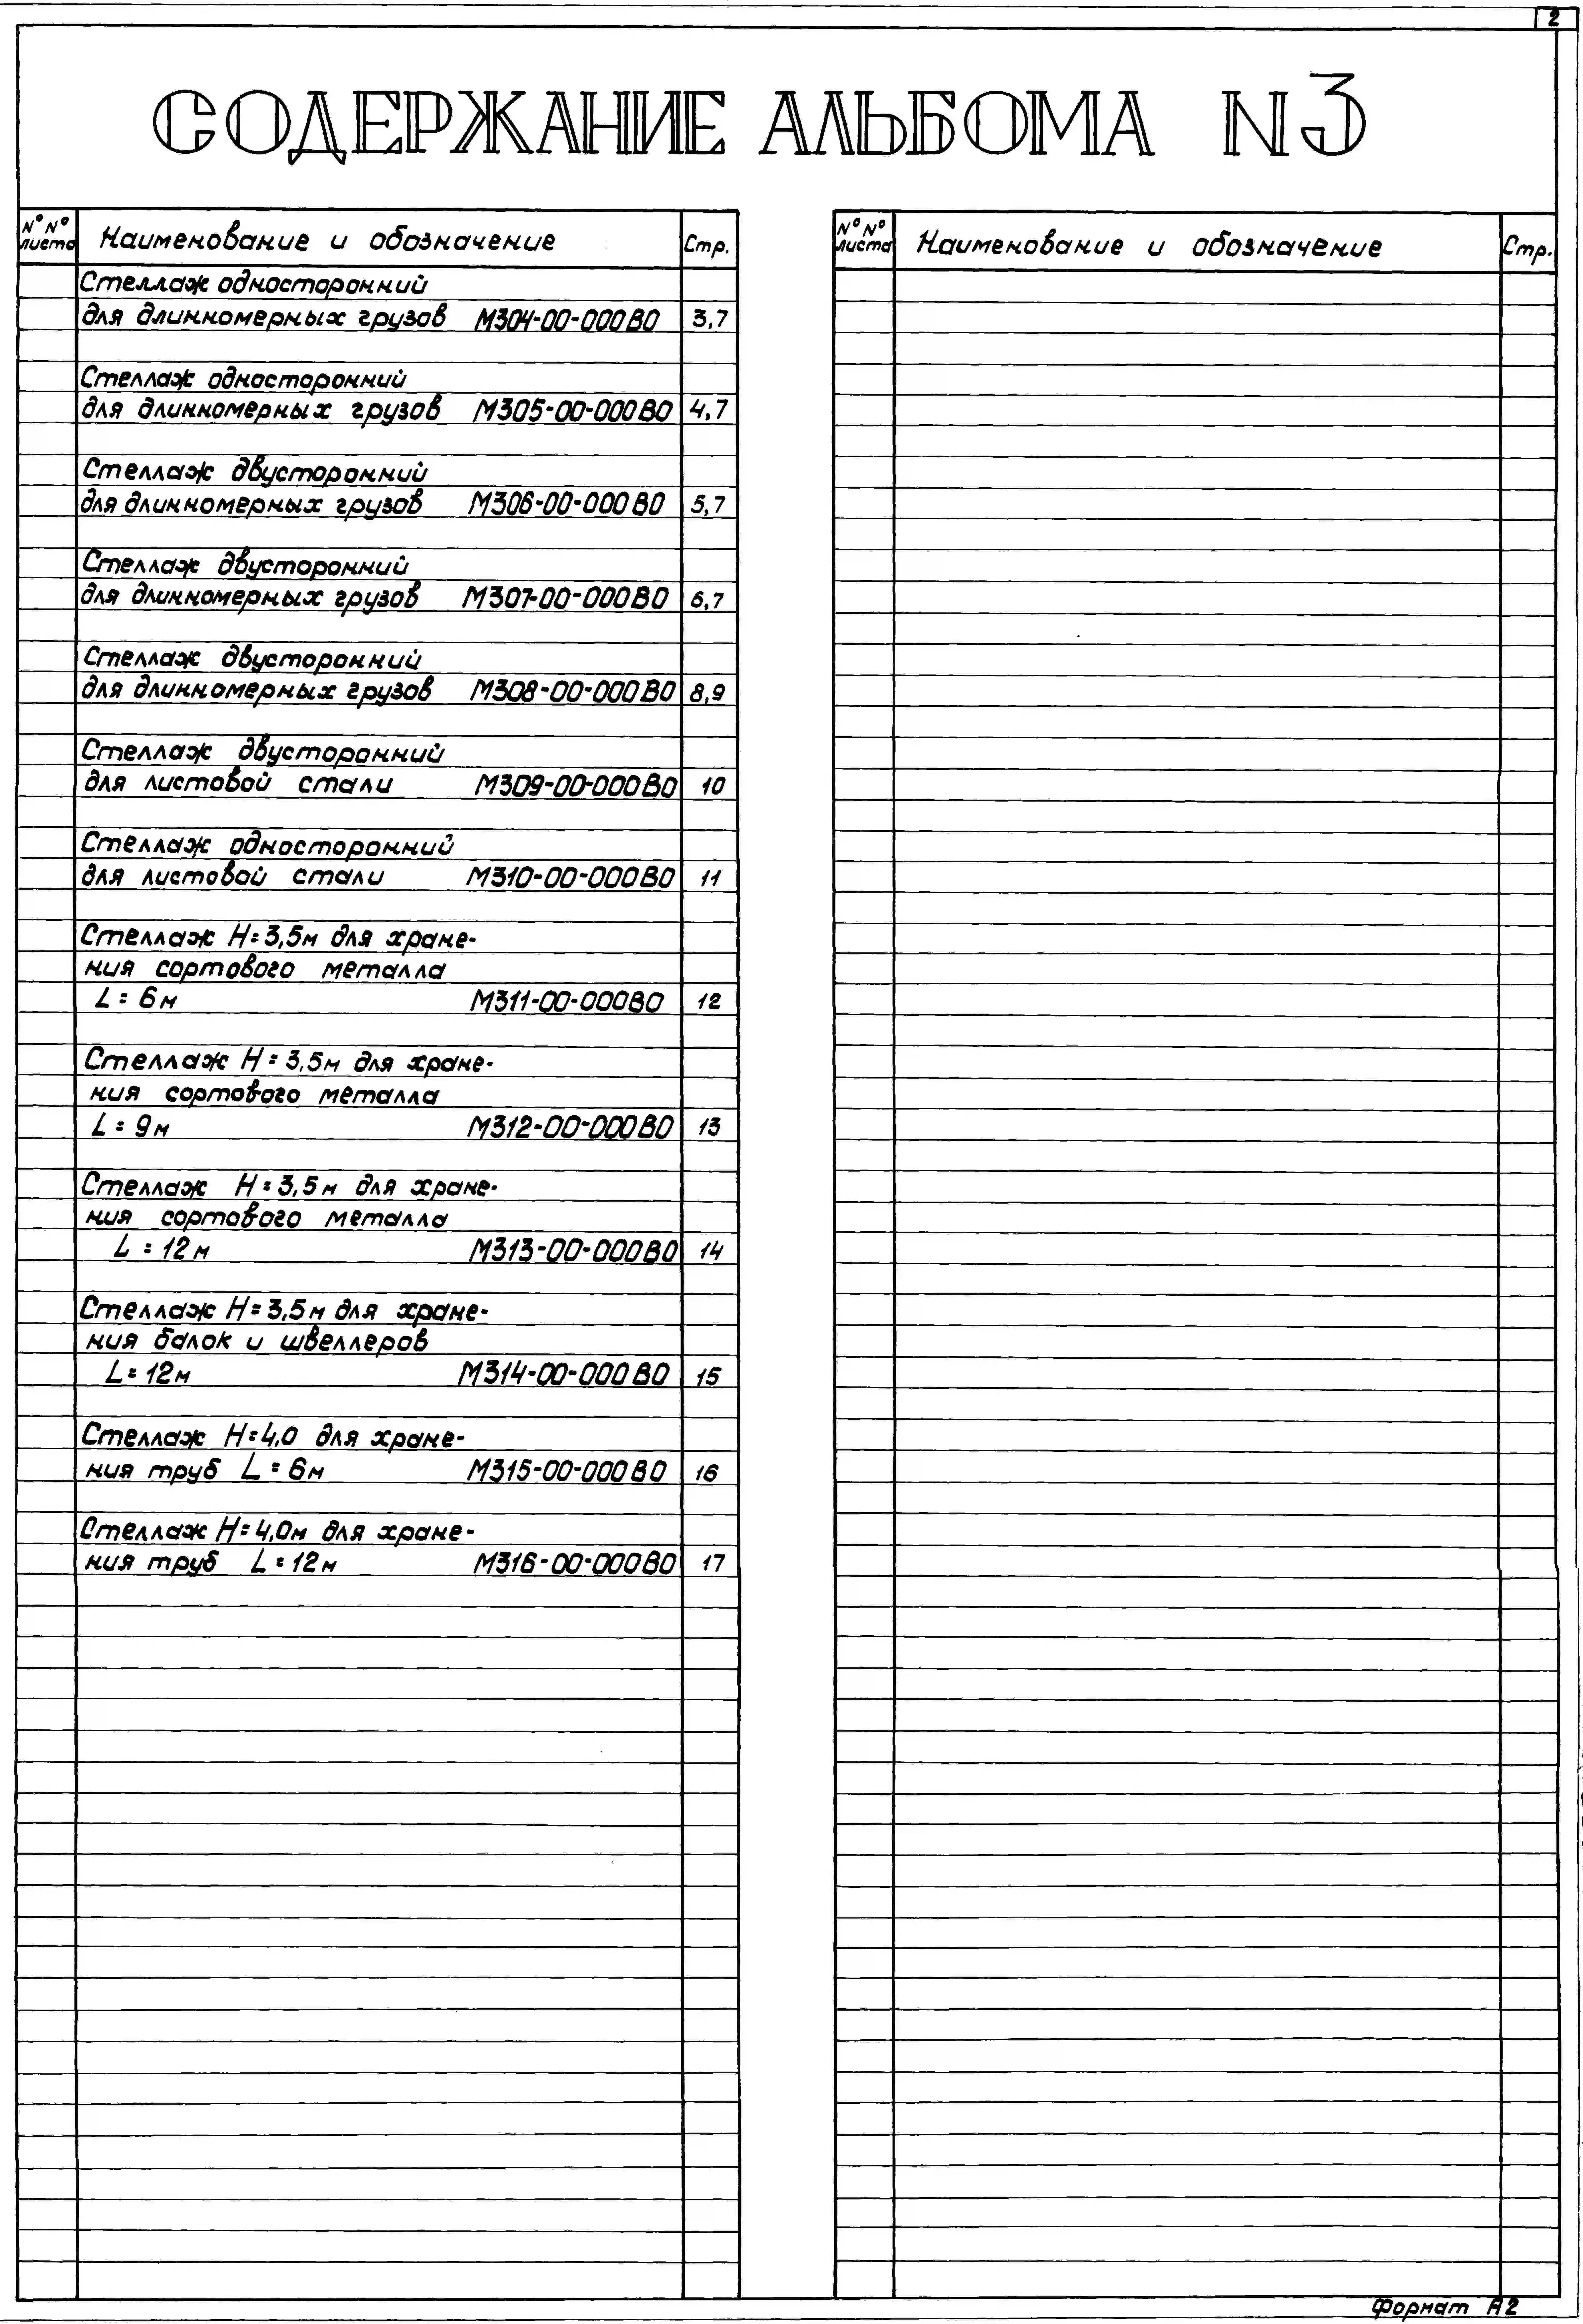 2
СОДЕРЖАНИЕ АЛЬБОМА N3
N°N° листа Наименование и обозначение Стр.
Стеллаж односторонний
для длинномерных грузов М304-00-000ВО 3,7
Стеллаж односторонний
для длинномерных грузов М305-00-000ВО 4,7
Стеллаж двусторонний
для длинномерных грузов М306-00-000ВО 5,7
Стеллаж двусторонний
для длинномерных грузов М307-00-000ВО 6,7
Стеллаж двусторонний
для длинномерных грузов М308-00-000ВО 8,9
Стеллаж двусторонний
для листовой стали М309-00-000ВО 10
Стеллаж односторонний
для листовой стали М310-00-000ВО 11
Стеллаж H=3,5м для хране-
ния сортового металла
L=6м М311-00-000ВО 12
Стеллаж H=3,5м для хране-
ния сортового металла
L=9м М312-00-000ВО 13
Стеллаж H=3,5м для хране-
ния сортового металла
L=12м М313-00-000ВО 14
Стеллаж H=3,5м для хране-
ния балок и швеллеров
L=12м М314-00-000ВО 15
Стеллаж H=4,0 для хране-
ния труб L=6м М315-00-000ВО 16
Стеллаж H=4,0м для хране-
ния труб L=12м М316-00-000ВО 17
N°N° листа Наименование и обозначение Стр.
Формат А2